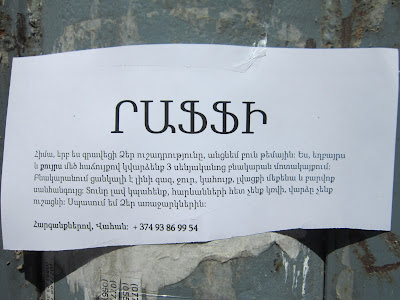 ՐԱՖՖԻ
Հիմա, երբ ես գրավեցի Ձեր ուշադրությունը, անցնեմ բուն թեմային: Ես, եղբայրս
և քույրս մեծ հաճույքով կվարձենք 3 սենյականոց բնակարան մոտակայքում:
Բնակարանում ցանկալի է լինի գազ, ջուր, կահույք, լվացքի մեքենա և բարվոք
սանհանգույց: Տունը լավ կպահենք, հարևանների հետ չենք կռվի, վարձը չենք
ուշացնի: Սպասում եմ Ձեր առաջարկներին:
Հարգանքներով, Վահան: + 374 93 86 99 54